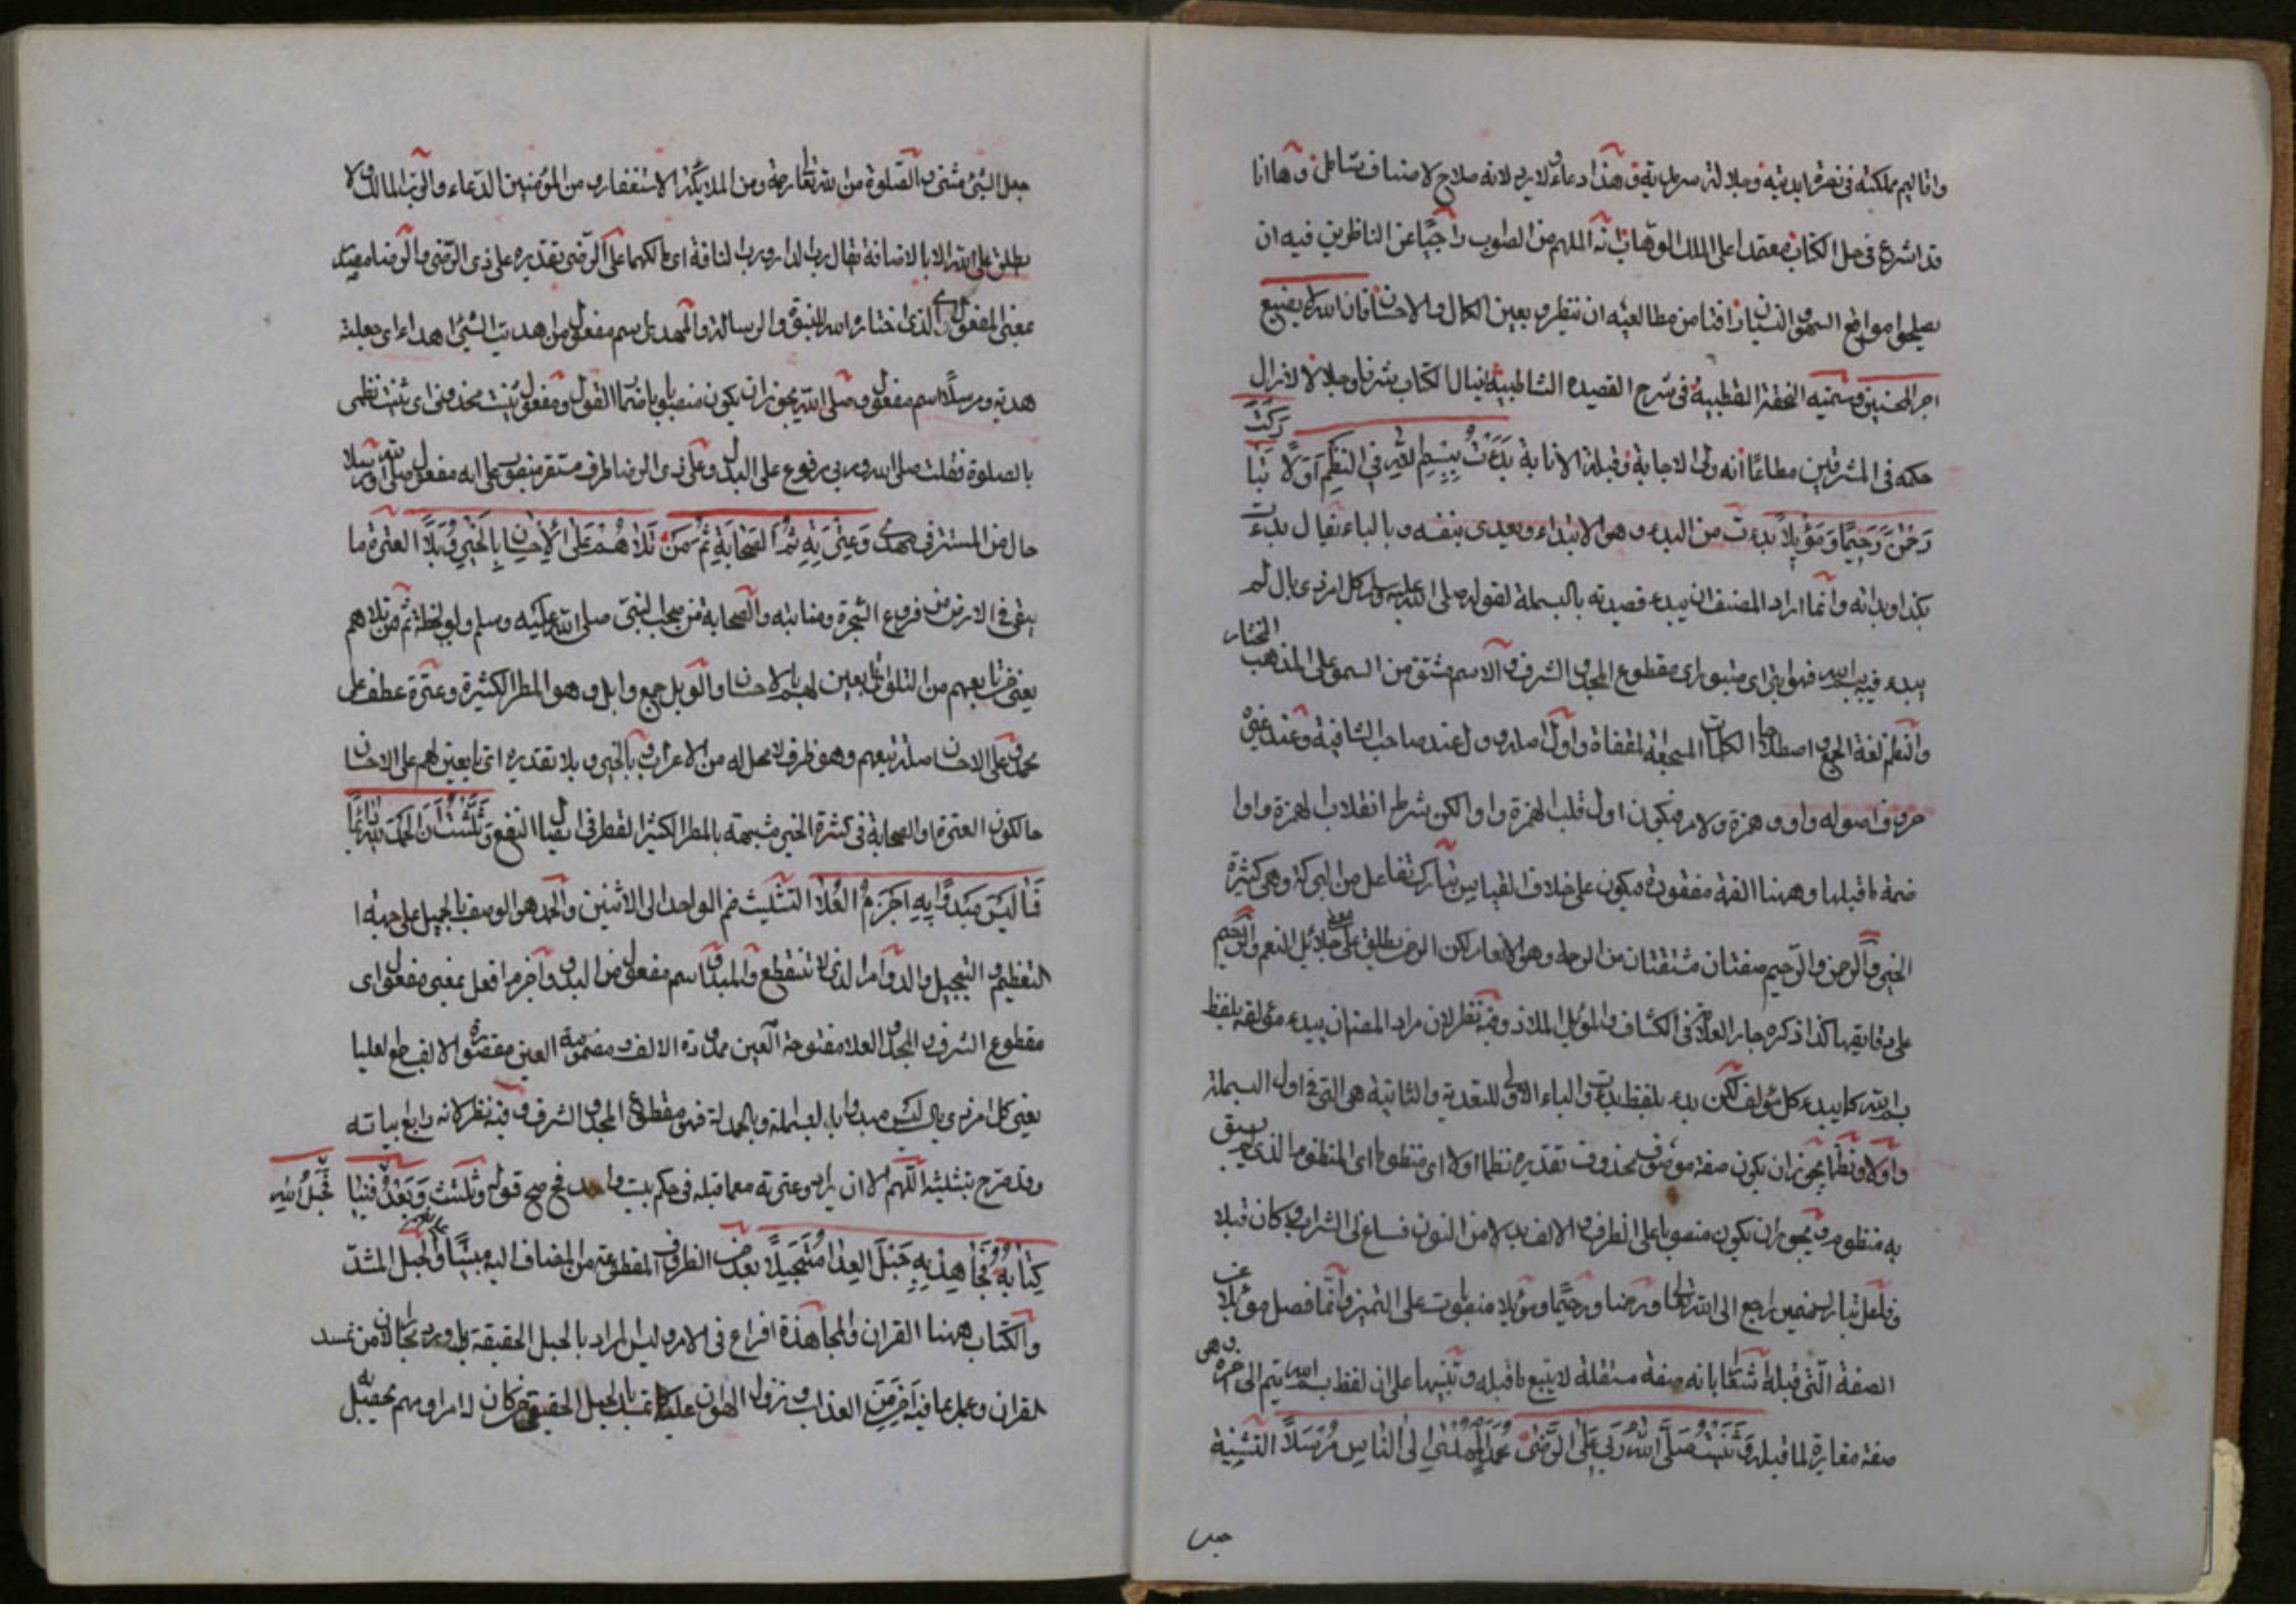 واقاليم مملكته في نصرة ابدية وجلالة سرمدية وهذا دعاء لا يرد لانه صلاح لاصناف شامل وها انا
قد اشرع في حل الكتاب معتمدا على الملك الوهاب انه الملهم من الصواب راجيا عن الناظرين فيه ان
يصلحوا مواضع السهو والنسيان وافيا من مطالعيه ان ينظروا بعين الكمال والاحسان فان الله لا يضيع
اجر المحسنين وسميته التحفة القطبية في شرح القصيدة الشاطبية الكتاب شرفا وجلالا لا زال
حكمه في المشرقين مطاعا انه ولي الاجابة وقبلة الانابة بَدَءْتُ بِبِسْمِ اللهِ في النَّظْمِ أوَّلًا تَبَا
رَكَتْ
رَحْمٰنًا رَحِيمًا وَمَوْئِلًا بدءت من البدء وهو الابتداء ويعدى بنفسه وبالباء يقال بدءت
بكذا وبدأته وانما اراد المصنف ان يبدء قصيدته بالبسملة لقوله صلى الله عليه وسلم كل امر ذي بال لم
يبدء فيه ببسم الله فهو ابتر اي مبتور اي مقطوع المجد والشرف والاسم مشتق من السمو على المذهب
المختار
والنظم لغة الجمع واصطلاحا الكلمات المسجعة المقفاة واول اصله وول عند صاحب الشافية وعند غيره
حروف اصوله واو وهمزة ولام فيكون اول قلب الهمزة واوا لكن شرط انقلاب الهمزة واوا
ضمة ما قبلها وههنا الضمة مفقودة فيكون على خلاف القياس تبارك تفاعل من البركة وهي كثرة
الخير والرحمن والرحيم صفتان مشتقتان من الرحمة وهو الانعام لكن الرحمن يطلق على جلائل النعم والرحيم
على دقايقها كذا ذكره جار العلامة في الكشاف والموئل الملاذ وفيه نظر لان مراد المصنف ان يبدء مؤلفه بلفظ
بسم الله كما يبدء كل مؤلف لكن بدء بلفظ بدءت والباء الاولى للتعدية والثانية هي التي في اول البسملة
واولا ونظما يجوز ان يكون صفة موصوف محذوف تقديره نظما اولا اي منظوما اي المنظوم الذي لم يسبق
به منظوم ويجوز ان يكون منصوبا على الظرف والالف بدلا من النون فساغ لي الشراب وكان قبلا
وفاعل تبارك ضمير راجع الى الله تعالى ورحمنا ورحيما وموئلا منصوبات على التميز وانما فصل موئلا عن
الصفة التي قبله اشعارا بانه صفة مستقلة لا يتبع ما قبله وتنبيها على ان لفظ بسم الله يتم الى اخره وهي
صفة مغايرة لما قبله وَثَنَّيْتُ صَلَّى اللهُ رَبِّي عَلَى الرِّضَى مُحَمَّدٍ الْمُهْدَى إلى النَّاسِ مُرْسَلًا التثنية
جعل
جعل الشئ مثنى والصلوة من الله تعالى رحمة ومن الملايكة الاستغفار ومن المؤمنين الدعاء والرب المالك ولا
يطلق على غير الله الا بالاضافة يقال رب الدار ورب الناقة اي مالكهما على الرضى تقديره على ذي الرضى والرضا مصدر
بمعنى المفعول اي الذي اختاره الله للنبوة والرسالة والمهدى اسم مفعول من اهديت الشئ اهداء اي جعلته
هدية ومرسلا اسم مفعول وصلى الله يجوز ان يكون منصوبا باضمار القول ومفعول ثنيت محذوف اي ثنيت نظمي
بالصلوة فقلت صلى الله وربي مرفوع على البدل وعلى ذي الرضا ظرف مستقر منصوب على انه مفعول صلى الله ومرسلا
حال من المستتر في مهدى وَعِتْرَتِهِ ثُمَّ الصَّحَابَةِ ثُمَّ مَنْ تَلَاهُمْ عَلَى الْإِحْسَانِ بِالْخَيْرِ وُبَّلًا العترة ما
يبقى في الارض من فروع الشجرة ومنابته والصحابة من صحب النبي صلى الله عليه وسلم ولو لحظة ثم من تلاهم
يعني من تابعهم من التلو تابعين لهم بالاحسان والوبل جمع وابل وهو المطر الكثيرة وعترة عطف على
محمد وعلى الاحسان صلة تبعهم وهو ظرف لا محل له من الاعراب وبالخير وبلا تقديره اي تابعين لهم على الاحسان
حال كون العترة والصحابة في كثرة الخير مشبهة بالمطر الكثير القطر في ايصال النفع وَثَلَّثْتُ أنَّ الْحَمْدَ لِلّٰهِ دَائِمًا
وَمَا لَيْسَ مَبْدُوًّا بِهِ أَجْذَمُ الْعُلَا التثليث ضم الواحد الى الاثنين والحمد هو الوصف بالجميل على جهة
التعظيم والتبجيل والدوام الذي لا تنقطع والمبدو اسم مفعول من البدو واجزم افعل بمعنى مفعول اي
مقطوع الشرف والمجد والعلا مفتوحة العين ممدودة الالف ومضمومة العين مقصورة الالف جمع لعليا
يعني كل امر ذي بال ليس مبدوا بالبسملة وبالحمدلة فهو مقطوع المجد والشرف وفيه نظر لانه رابع ابياته
وقد صرح بتثليثه اللهم الا ان يراد وعترته مع ما قبله في حكم بيت واحد فح صح قوله وثلثت وَبَعْدُ فَحَبْلُ اللهِ فِينَا
كِتَابُهُ فَجَاهِدْ بِهِ حِبْلَ الْعِدَا مُتَحَبِّلًا بعد من الظروف المقطوعة من المضاف اليه مبنيا والحبل المشد
والكتاب ههنا القران والمجاهدة افراغ في الامر وليس المراد بالحبل الحقيقة بل ورد مجازا لان من تمسد
القران وعمل بما فيه اخر من العذاب ونزول الهوان عليه كما تمسك بالحبل الحقيقي من كان له امر او مهم بحصيل